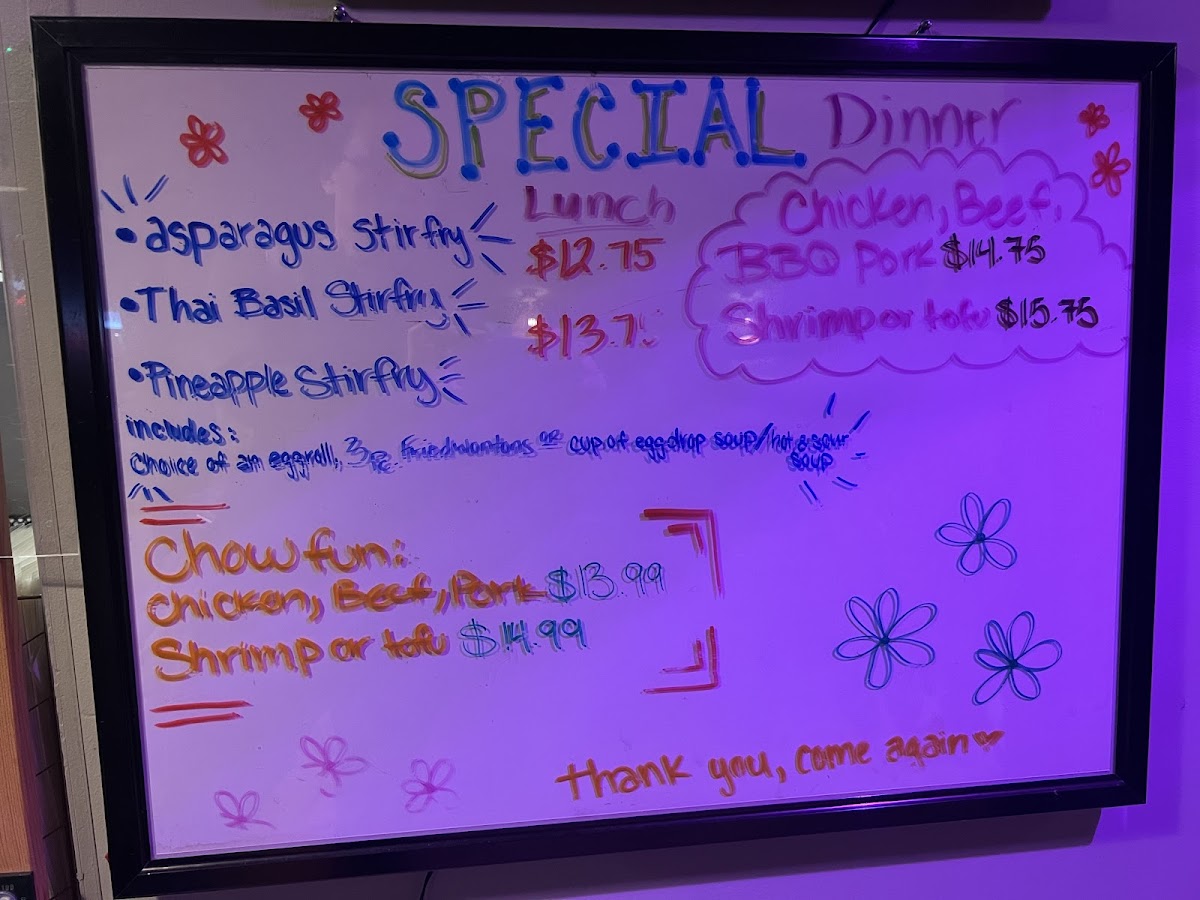 SPECIAL Dinner
• asparagus stirfry
• Thai Basil Stirfry
• Pineapple Stirfry
Lunch
$12.75
$13.7
Chicken, Beef,
BBQ pork $14.75
Shrimp or tofu $15.75
includes:
choice of an eggroll, 3pc. Fried wontons or cup of eggdrop soup/hot & sour
soup
Chow fun:
chicken, Beef, Pork $13.99
Shrimp or tofu $14.99
thank you, come again